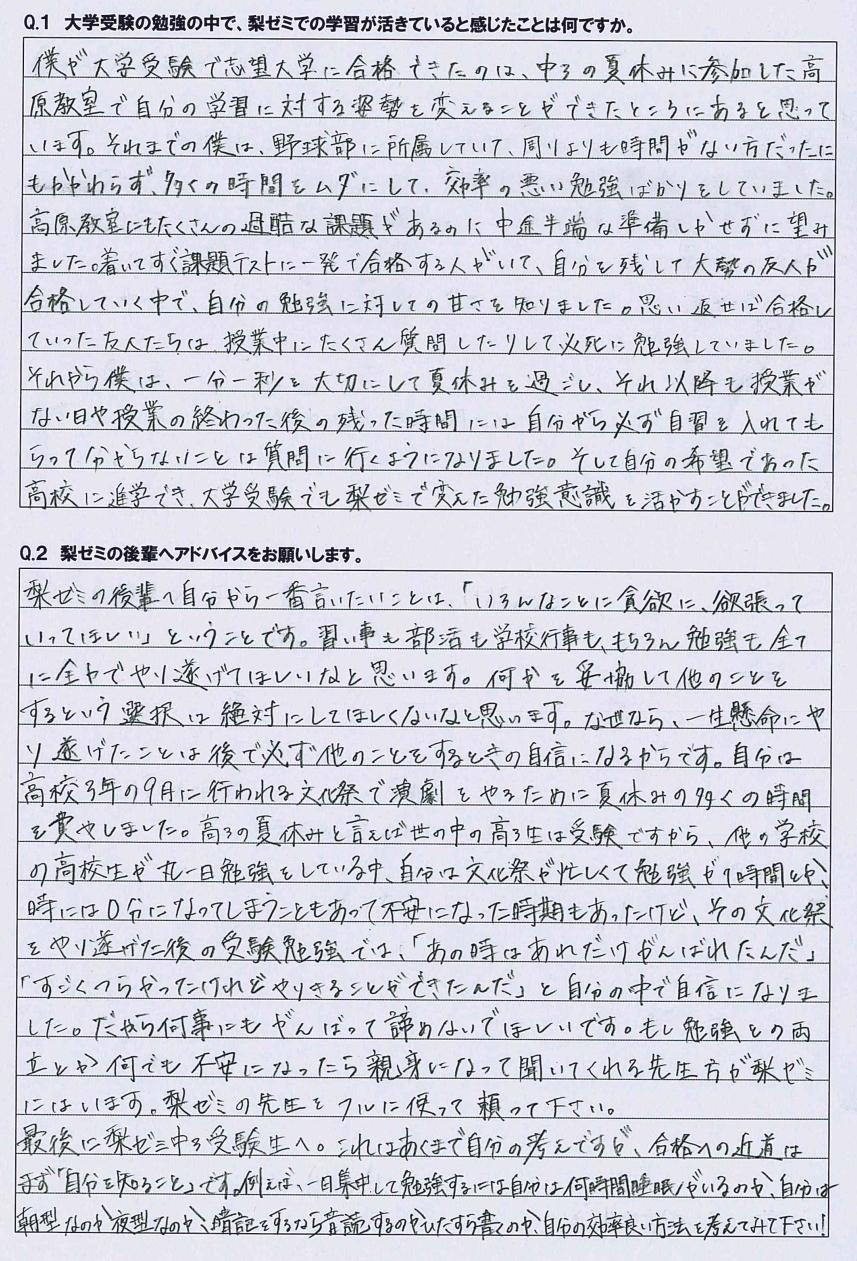 Q.1 大学受験の勉強の中で、梨ゼミでの学習が活きていると感じたことは何ですか。
僕が大学受験で志望大学に合格できたのは、中3の夏休みに参加した高
原教室で自分の学習に対する姿勢を変えることができたところにあると思って
います。それまでの僕は、野球部に所属していて、周りよりも時間がない方だったに
もかかわらず、多くの時間をムダにして、効率の悪い勉強ばかりをしていました。
高原教室にもたくさんの過酷な課題があるのに中途半端な準備しかせずに望み
ました。着いてすぐ課題テストに一発で合格する人がいて、自分を残して大勢の友人が
合格していく中で、自分の勉強に対しての甘さを知りました。思い返せば合格し
ていった友人たちは、授業中にたくさん質問したりして必死に勉強していました。
それから僕は、一分一秒を大切にして夏休みを過ごし、それ以降も授業が
ない日や授業の終わった後の残った時間には自分から必ず自習を入れても
らって分からないことは質問に行くようになりました。そして自分の希望であった
高校に進学でき、大学受験でも梨ゼミで変えた勉強意識を活かすことができました。
Q.2 梨ゼミの後輩へアドバイスをお願いします。
梨ゼミの後輩へ自分から一番言いたいことは、「いろんなことに貪欲に、欲張って
いってほしい」ということです。習い事も部活も学校行事も、もちろん勉強も全て
に全力でやり遂げてほしいなと思います。何かを妥協して他のことを
するという選択は絶対にしてほしくないなと思います。なぜなら、一生懸命にや
り遂げたことは後で必ず他のことをするときの自信になるからです。自分は
高校3年の9月に行われる文化祭で演劇をやるために夏休みの多くの時間
を費やしました。高3の夏休みと言えば世の中の高3生は受験ですから、他の学校
の高校生が丸一日勉強をしている中、自分は文化祭が忙しくて勉強が1時間とか、
時には0分になってしまうこともあって不安になった時期もあったけど、その文化祭
をやり遂げた後の受験勉強では、「あの時はあれだけがんばれたんだ」
「すごくつらかったけれどやりきることができたんだ」と自分の中で自信になりま
した。だから何事にもがんばって諦めないでほしいです。もし勉強との両
立とか何でも不安になったら親身になって聞いてくれる先生方が梨ゼミ
にはいます。梨ゼミの先生をフルに使って頼って下さい。
最後に梨ゼミ中3受験生へ。これはあくまで自分の考えですが、合格への近道は
まず「自分を知ること」です。例えば、一日集中して勉強するには自分は何時間睡眠がいるのか、自分は
朝型なのか夜型なのか、暗記をするなら音読するのかひたすら書くのか、自分の効率良い方法を考えてみて下さい!